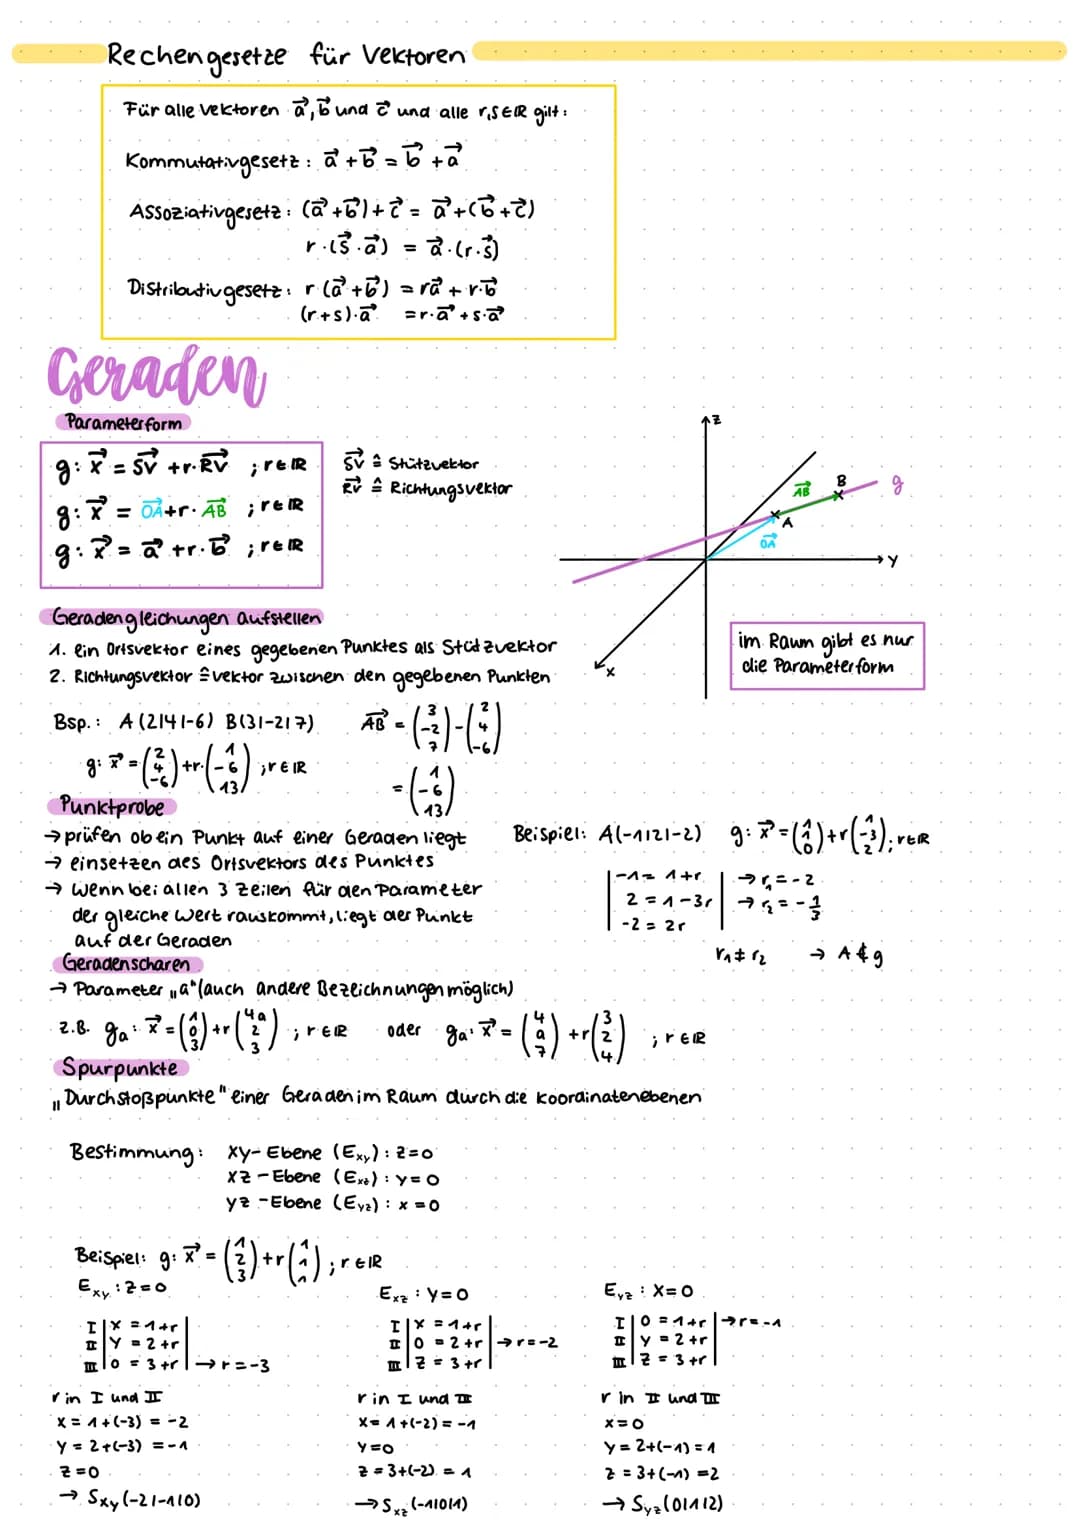 Rechengesetze für Vektoren
Für alle Vektoren a⃗, b⃗ und c⃗ und alle r,s∈ℝ gilt:
Kommutativgesetz: a⃗ + b⃗ = b⃗ + a⃗
Assoziativgesetz: (a⃗ + b⃗) + c⃗ = a⃗ + (b⃗ + c⃗)
r · (s⃗ · a⃗) = a⃗ · (r · s⃗)
Distributivgesetz: r (a⃗ + b⃗) = ra⃗ + r·b⃗
(r+s)·a⃗ = r·a⃗ + s·a⃗
Geraden
Parameterform
g: x⃗ = SV⃗ + r·RV⃗ ; r∈ℝ
g: x⃗ = OA⃗ + r·AB⃗ ; r∈ℝ
g: x⃗ = a⃗ + r·b⃗ ; r∈ℝ
SV⃗ ≙ Stützvektor
RV⃗ ≙ Richtungsvektor
z
AB⃗
B
g
A
OA⃗
y
x
im Raum gibt es nur
die Parameterform
Geradengleichungen aufstellen
1. ein Ortsvektor eines gegebenen Punktes als Stützvektor
2. Richtungsvektor ≙ vektor zwischen den gegebenen Punkten
Bsp.: A(2|4|-6) B(3|-2|7) AB⃗ = (3 -2 7) - (2 4 -6)
g: x⃗ = (2 4 -6) + r·(1 -6 13) ; r∈ℝ = (1 -6 13)
Punktprobe
→ prüfen ob ein Punkt auf einer Geraden liegt
→ einsetzen des Ortsvektors des Punktes
→ Wenn bei allen 3 Zeilen für den Parameter
der gleiche Wert rauskommt, liegt der Punkt
auf der Geraden
Beispiel: A(-1|2|-2) g: x⃗ = (1 1 0) + r(1 -3 2) ; r∈ℝ
-1 = 1+r → r₁ = -2
2 = 1-3r → r₂ = -1/3
-2 = 2r
r₁ ≠ r₂ → A ∉ g
Geradenscharen
→ Parameter „a" (auch andere Bezeichnungen möglich)
z.B. gₐ: x⃗ = (1 0 3) + r(4a 2 3) ; r∈ℝ oder gₐ: x⃗ = (4 a 7) + r(3 2 4) ; r∈ℝ
Spurpunkte
„Durchstoßpunkte" einer Geraden im Raum durch die Koordinatenebenen
Bestimmung: xy-Ebene (Exy): z=0
xz-Ebene (Exz): y=0
yz-Ebene (Eyz): x=0
Beispiel: g: x⃗ = (1 2 3) + r(1 1 1) ; r∈ℝ
Exy: z=0
I x = 1+r
II y = 2+r
III 0 = 3+r → r=-3
r in I und II
x = 1+(-3) = -2
y = 2+(-3) = -1
z=0
→ Sxy(-2|-1|0)
Exz: y=0
I x = 1+r
II 0 = 2+r → r=-2
III z = 3+r
r in I und III
x = 1+(-2) = -1
y=0
z = 3+(-2) = 1
→ Sxz(-1|0|1)
Eyz: x=0
I 0 = 1+r → r=-1
II y = 2+r
III z = 3+r
r in II und III
x=0
y = 2+(-1) = 1
z = 3+(-1) = 2
→ Syz(0|1|2)